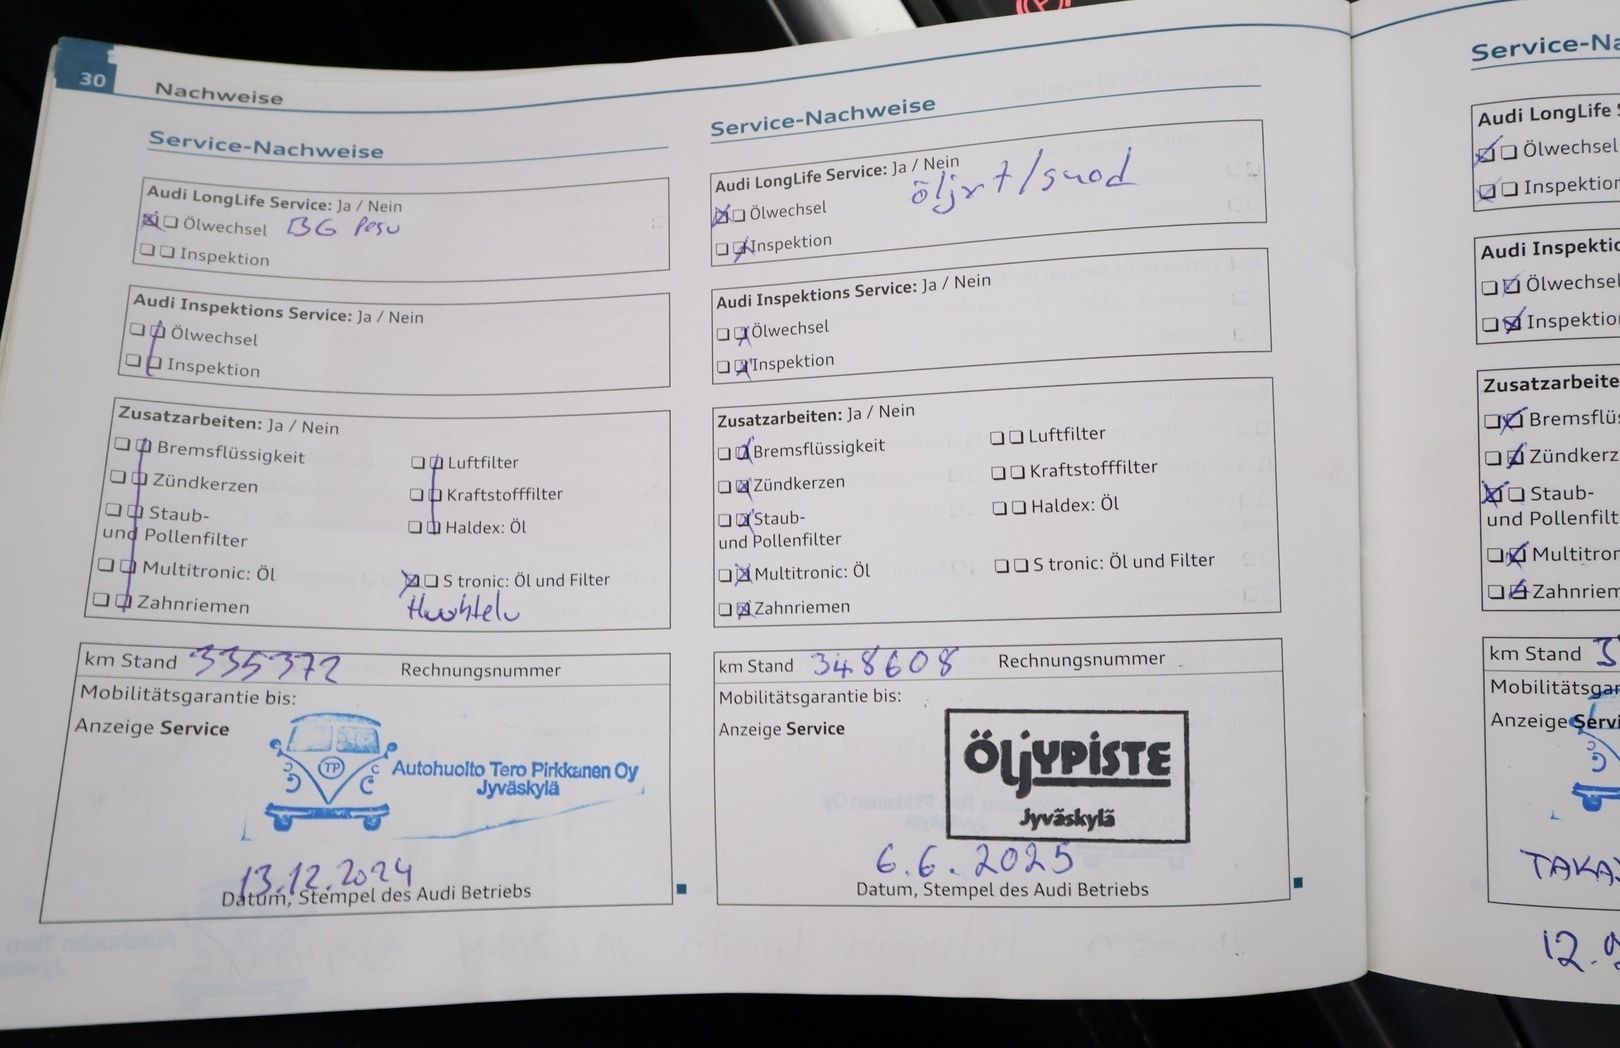 30
Nachweise
Service-Nachweise
Audi LongLife Service: Ja / Nein
Ölwechsel BG Pesu
Inspektion
Audi Inspektions Service: Ja / Nein
Ölwechsel
Inspektion
Zusatzarbeiten: Ja / Nein
Bremsflüssigkeit
Luftfilter
Zündkerzen
Kraftstofffilter
Staub-
und Pollenfilter
Haldex: Öl
Multitronic: Öl
S tronic: Öl und Filter
Zahnriemen
Huuhtelu
km Stand 335372 Rechnungsnummer
Mobilitätsgarantie bis:
Anzeige Service
TP
Autohuolto Tero Pirkkanen Oy
Jyväskylä
13.12.2024
Datum, Stempel des Audi Betriebs
Service-Nachweise
Audi LongLife Service: Ja / Nein
öljyt/suod
Ölwechsel
Inspektion
Audi Inspektions Service: Ja / Nein
Ölwechsel
Inspektion
Zusatzarbeiten: Ja / Nein
Bremsflüssigkeit
Luftfilter
Zündkerzen
Kraftstofffilter
Staub-
und Pollenfilter
Haldex: Öl
Multitronic: Öl
S tronic: Öl und Filter
Zahnriemen
km Stand 348608 Rechnungsnummer
Mobilitätsgarantie bis:
Anzeige Service
ÖljYPiSTE
Jyväskylä
6.6.2025
Datum, Stempel des Audi Betriebs
Service-Na
Audi LongLife S
Ölwechsel
Inspektion
Audi Inspektio
Ölwechsel
Inspektion
Zusatzarbeite
Bremsflüs
Zündkerz
Staub-
und Pollenfilt
Multitron
Zahnriem
km Stand 3
Mobilitätsgar
Anzeige Servi
TAKA
12.